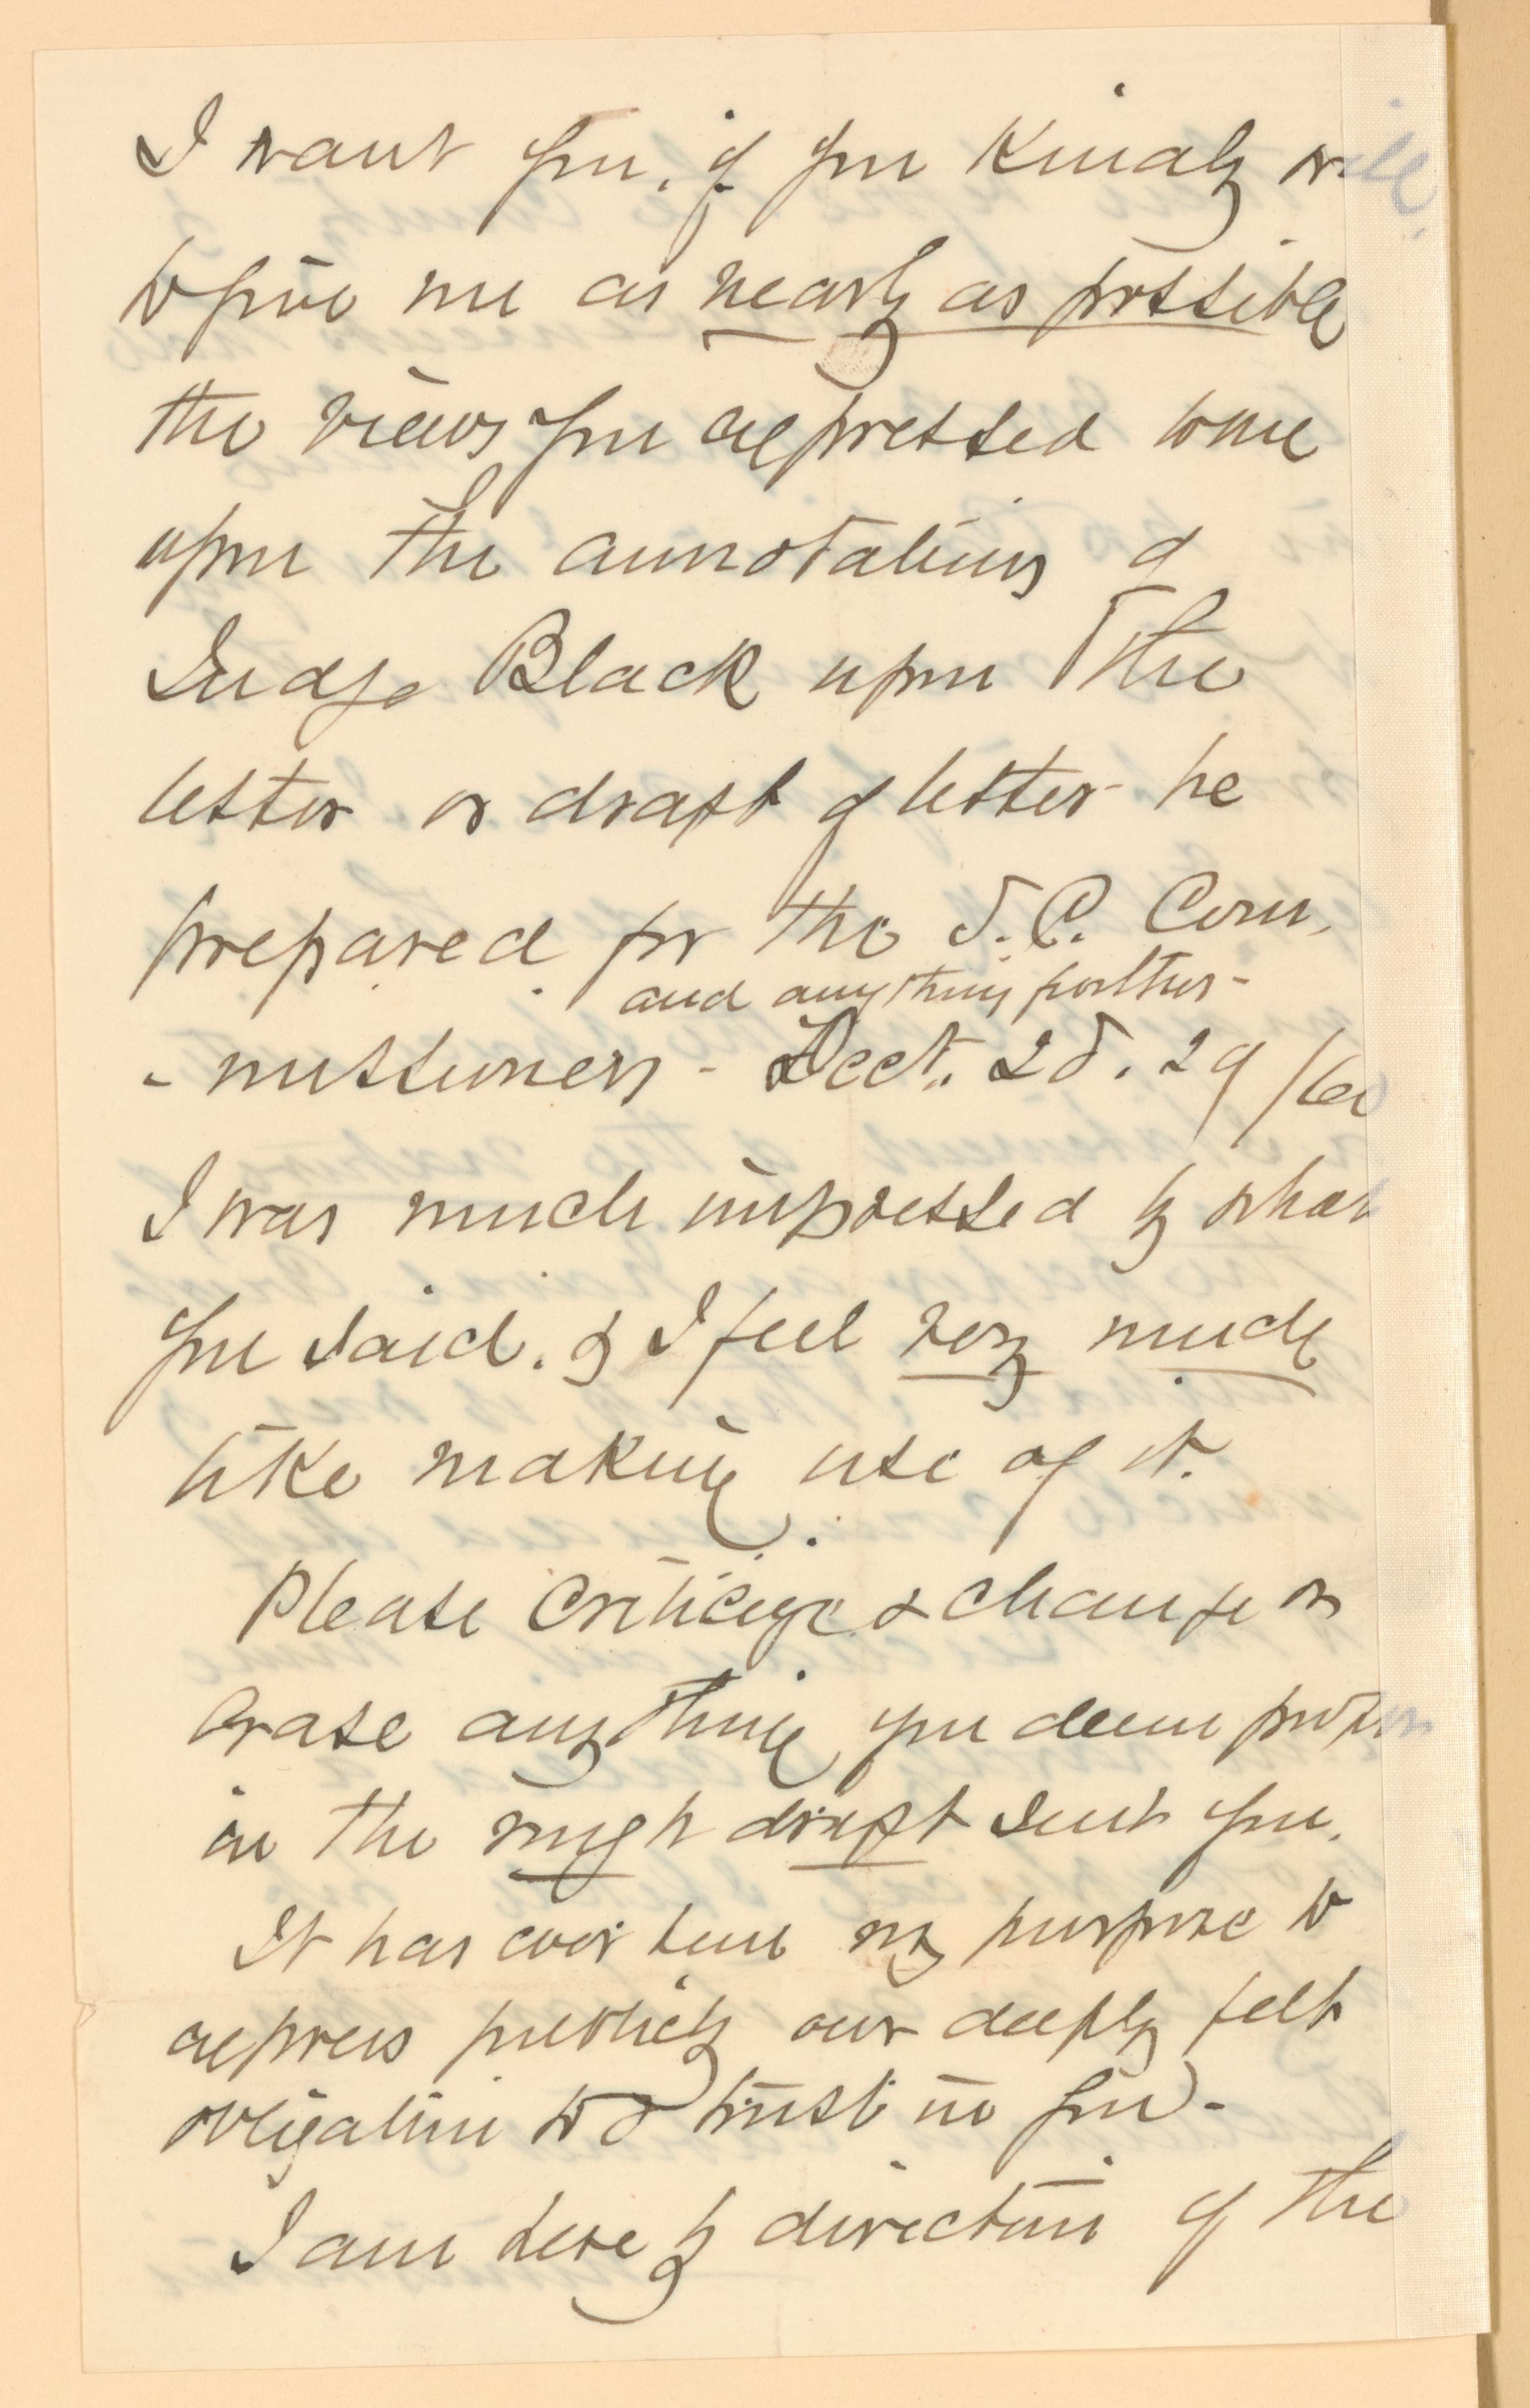 I want you, if you kindly will,
to give me as nearly as possible
the views you expressed to me
upon the annotations of
Judge Black upon the
letter or draft of letter he
prepared for the S.C. Com,
and anything further -
- missioners - Dect. 28. 29/60
I was much impressed by what
you said. & I feel very much
like making use of it.
Please criticize & change or
erase anything you deem proper
in the rough draft sent you.
It has ever been my purpose to
express publicly our deeply felt
obligation to & trust in you -
I am here by direction of the